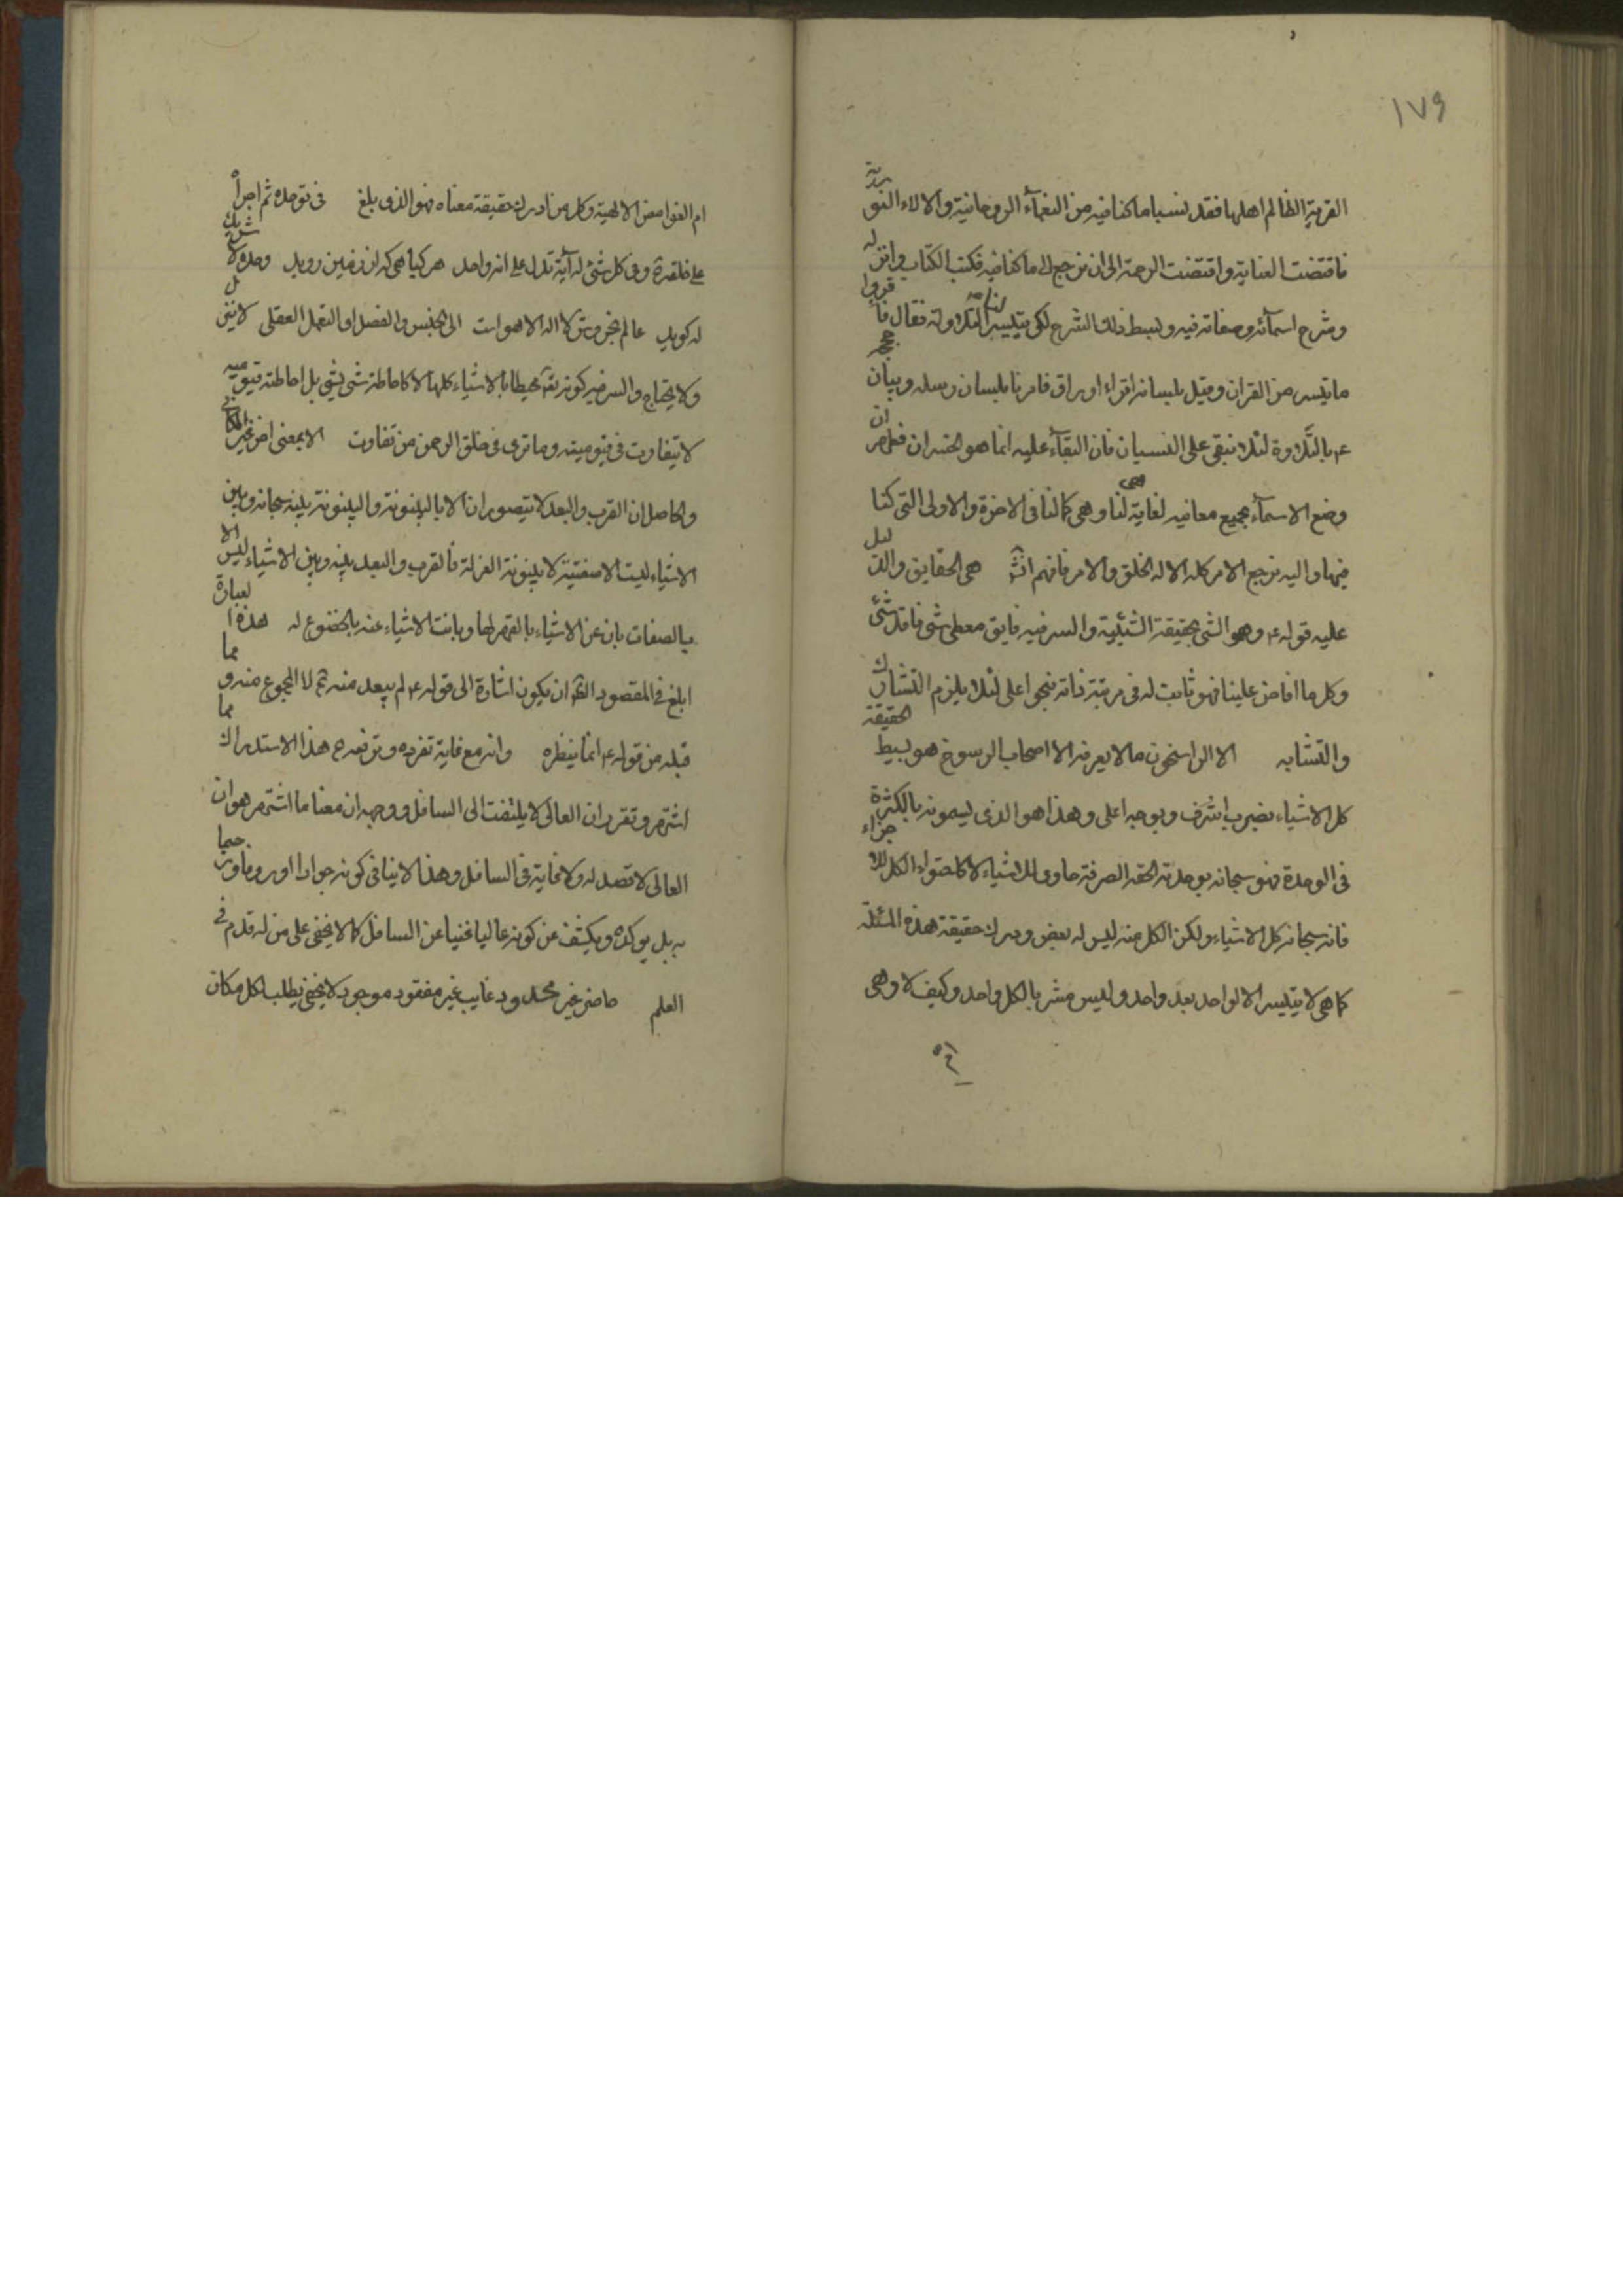 ١٧٩
القرية الظالم اهلها فقد نسينا ما كنا فيه من النعمآء الروحانية والالاء النورية
فاقتضت العناية واقتضت الرحمة الى ان نرجع الى ما كنا فيه فكتب الكتاب وانزله
وشرح اسمآئه وصفاته فيه وبسط ذلك الشرح لكى يتيسر لنا التلاوته فقال فاقرؤا
ما تيسر من القران وقيل بلسانه اقراء اوراق فامرنا بلسان رسله وبيان حججه
ع بالتلاوة لئلا نبقى على النسيان فان البقآء عليه انما هو الخسران فظهر ان
وضع الاسمآء بجميع معانيه لغاية لنا وهى كمالنا فى الاخرة والاولى التى كنا
فيها واليه نرجع الامر كله الا له الخلق والامر فافهم انشء هى الحقايق والدليل
عليه قوله ع وهو الشئ بحقيقة الشيئية والسر فيه فايق معطى شئ فاقد شئ
وكل ما افاض علينا فهو ثابت له فى مرتبة ذاته بنحو اعلى لئلا يلزم التشارك
والتشابه الا الراسخون ما لا يعرفه الا اصحاب الرسوخ هو بسيط الحقيقة
كل الاشياء بضرب اشرف وبوجه اعلى وهذا هو الذى يسمونه بالكثرة
فى الوحدة فهو سبحانه بوحدته الحقه الصرفة حاوى للاشياء لا كاحتواء الكل للاجزاء
فانه سبحانه كل الاشياء ولكن الكل منه ليس له بعض ودرك حقيقة هذه المسئلة
كما هى لا يتيسر الا لواحد بعد واحد وليس مشربا لكل واحد وكيف لا وهى
ام الغوامض الالهية وكل من ادرك حقيقة معناه فهو الذى بلغ فى توحده ثم اجراه
على خلقه وفى كل شئ له آية تدل على انه واحد هر كياهى كه از زمين رويد وحده لا شريك
له كويد عالم بخروش لا اله الا هو است الى الجنس والفصل او التعمل العقلى لا يتنزل
ولا يحتاج والسر فيه كونه تعم محيطا بالاشياء كلها لا كاحاطة شئ بشئ بل احاطته قيومية
لا يتفاوت فى قيوميته وما ترى فى خلق الرحمن من تفاوت الا بمعنى اخر غير المكانى
والحاصل ان القرب والبعد لا يتصوران الا بالبينونة والبينونة بينه سبحانه وبين
الاشياء ليست الا صفتية لا بينونة العزلة فالقرب والبعد بينه وبين الاشياء ليس الا
بالصفات بان عن الاشياء بالقهر لها وبانت الاشياء عنه بالخضوع له هذه العبارة
ابلغ فى المقصود الثم ان يكون اشارة الى قوله ع لم يبعد منه ثم لا المجموع منه ومما
قبله من قوله ع انما ينظره وانه مع غاية تفرده وترفعه ع هذا الاستدراك مما
اشتهر وتقرر ان العالى لا يلتفت الى السافل ووجهه ان معنا ما اشتهر هو ان
العالى لا قصد له ولا غاية فى السافل وهذا لا ينافى كونه جوادا
به بل يوكده ويكشف عن كونه عاليا غنيا عن السافل كما لا يخفى على من له قدم فى
العلم حاضر غير محدود غايب غير مفقود موجود لا يخفى يطلب بكل مكان